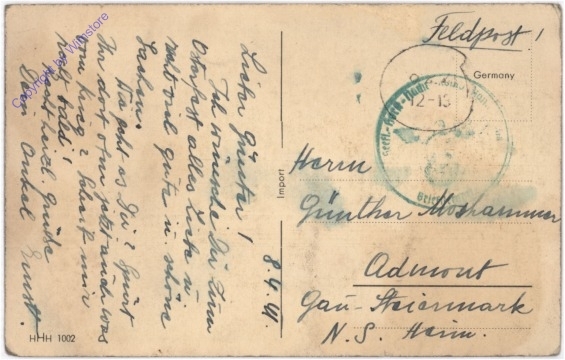 Feldpost!
Germany
12-13
Import
Lieber Günter!
Ich wünsche Dir zum
Osterfest alles Liebe u.
recht viel gute u. schöne
Sachen.
Wie geht es Dir? Spürt
Ihr dort oben jetzt auch was
vom Krieg? Schreib mir
recht bald!
Herzl. Grüße
Dein Onkel Ernst.
8.4.41.
Herrn
Günther Moshammer
Admont
Gau-Steiermark
N.S. Heim.
HHH 1002
copyright by Wignstore